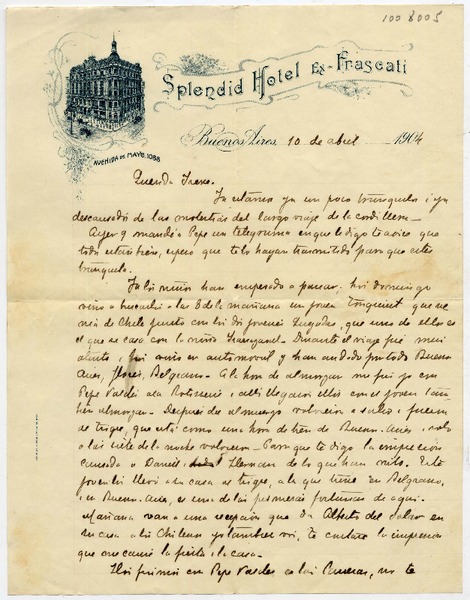 1008005
Splendid Hotel Ex-Frascati
AVENIDA DE MAYO, 1088
Buenos Aires, 10 de abril 1904
Querida Irene.
Ya estamos ya un poco tranquilos i ya
descansados de las molestias del largo viaje de la cordillera.
Ayer 9 mandó Pepe un telegrama en que le digo te avise que
todo está bien, espero que te lo hayan trasmitido para que estés
tranquila.
Ya los niños han empezado a pasear; hoi domingo
vino a buscarlos a las 8 de la mañana un joven que ve-
nia de Chile junto con los dos jovenes, que uno de ellos es
el que se casó con la niña Irarrazaval. Durante el viaje fué mui
atento, i hoi vino en automovil y han andado por todo Buenos
Aires, Flores, Belgrano. A la hora de almorzar me fuí yo con
Pepe Valdés a la Rotiserie i allí llegaron ellos con el joven tam-
bién almorzar. Despues de almuerzo volvieron a salir i fueron
al tigre, que está como una hora de tren de Buenos Aires, i solo
a las siete de la noche volvieron. Para que te digo la impresion
causada a Daniel, Hernan de lo que han visto. Este
joven los llevó a su casa al tigre, a la que tiene en Belgrano,
i en Buenos Aires, es una de las primeras fortunas de aquí.
Mañana van a una recepcion que da Alberto del Solar en
su casa a los Chilenos yo tambien voi, te contaré la impresion
que nos cause la fiesta i la casa.
Hoi fuimos con Pepe Valdés a las Carreras, no te